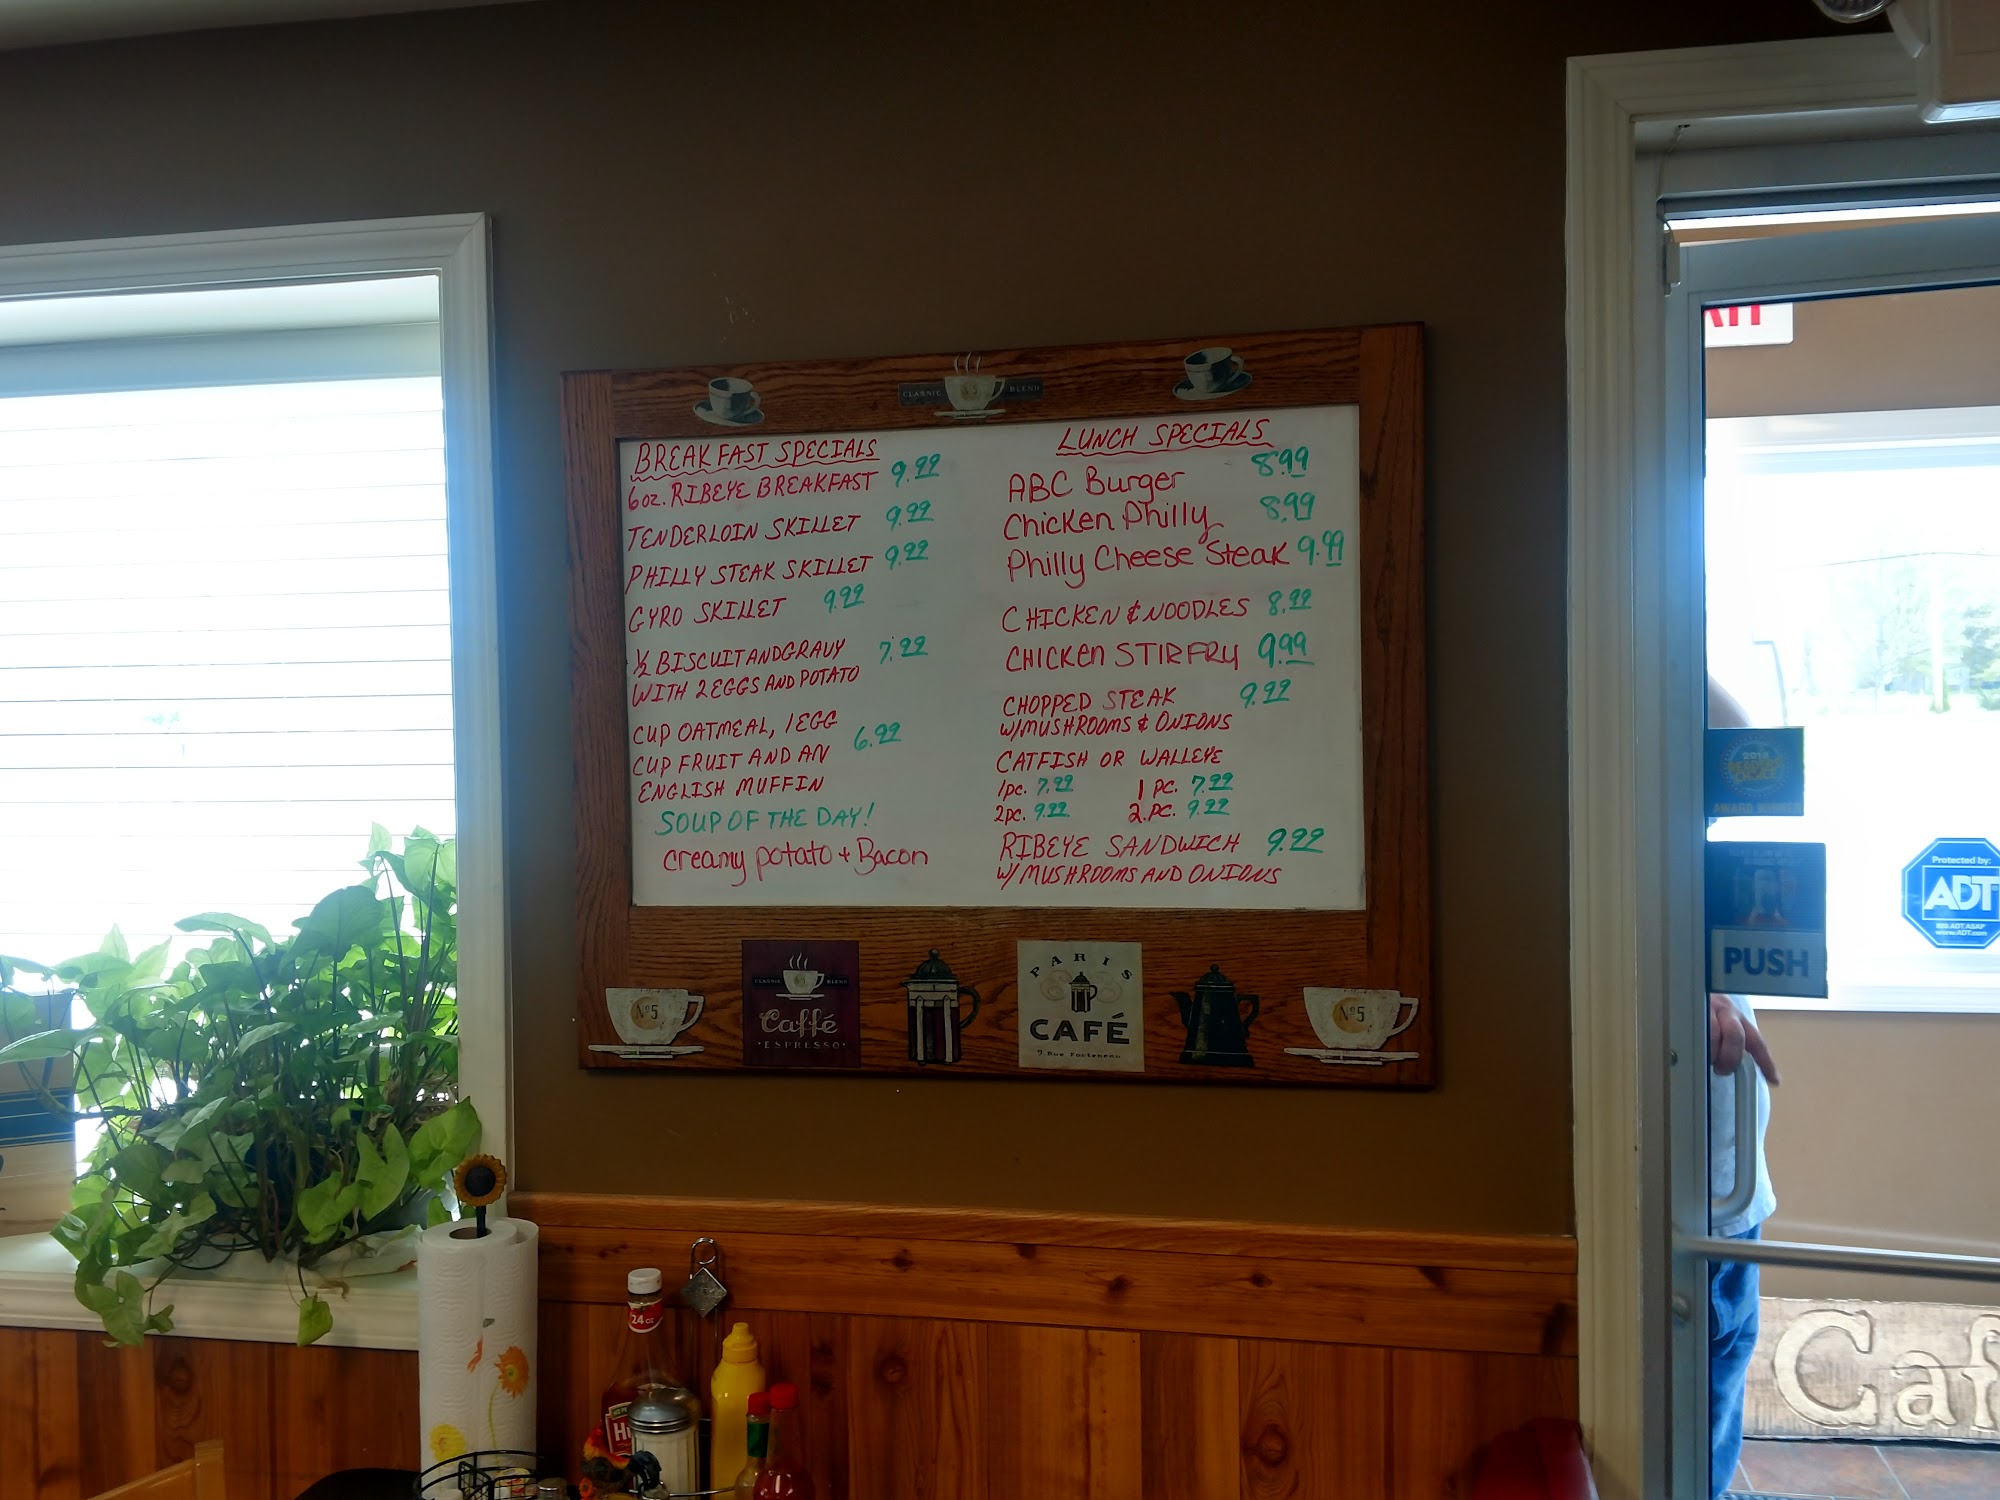 CLASSIC BLEND
BREAKFAST SPECIALS
6oz. RIBEYE BREAKFAST 9.99
TENDERLOIN SKILLET 9.99
PHILLY STEAK SKILLET 9.99
GYRO SKILLET 9.99
½ BISCUIT AND GRAVY 7.99
WITH 2 EGGS AND POTATO
CUP OATMEAL, 1 EGG
CUP FRUIT AND AN 6.99
ENGLISH MUFFIN
SOUP OF THE DAY!
creamy potato + Bacon
LUNCH SPECIALS
ABC Burger 8.99
Chicken Philly 8.99
Philly Cheese Steak 9.99
CHICKEN & NOODLES 8.99
CHICKEN STIR FRY 9.99
CHOPPED STEAK 9.99
W/MUSHROOMS & ONIONS
CATFISH OR WALLEYE
1pc. 7.99 1 pc. 7.99
2pc. 9.99 2.pc. 9.99
RIBEYE SANDWICH 9.99
W/ MUSHROOMS AND ONIONS
Nº5
CLASSIC BLEND
Caffé
ESPRESSO
PARIS
CAFÉ
Nº5
24 OZ
AWARD WINNER
PUSH
Protected by:
ADT
www.ADT.com
Caf